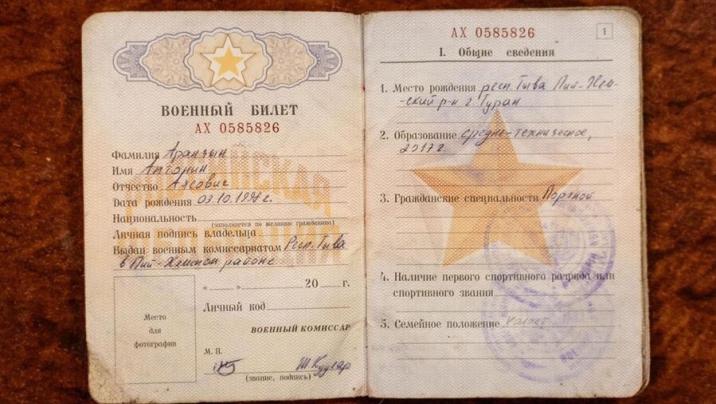 ВОЕННЫЙ БИЛЕТ
АХ 0585826
Фамилия Аранчын
Имя
Отчество Алсович
Дата рождения 03.10.199 г.
Национальность
(заполняется по желанию гражданина)
Личная подпись владельца
Выдан военным комиссариатом Респ. Тива
в Пий-Хемском районе
«__» 20 г.
Место
для
фотографии
Личный код
ВОЕННЫЙ КОМИССАР
М. П.
(звание, подпись)
АХ 0585826
1
I. Общие сведения
1. Место рождения респ. Тива Пий-Хем-
-ский р-н г. Туран
2. Образование средне-техническое,
2017 г.
3. Гражданские специальности
4. Наличие первого спортивного разряда или
спортивного звания
5. Семейное положение холост